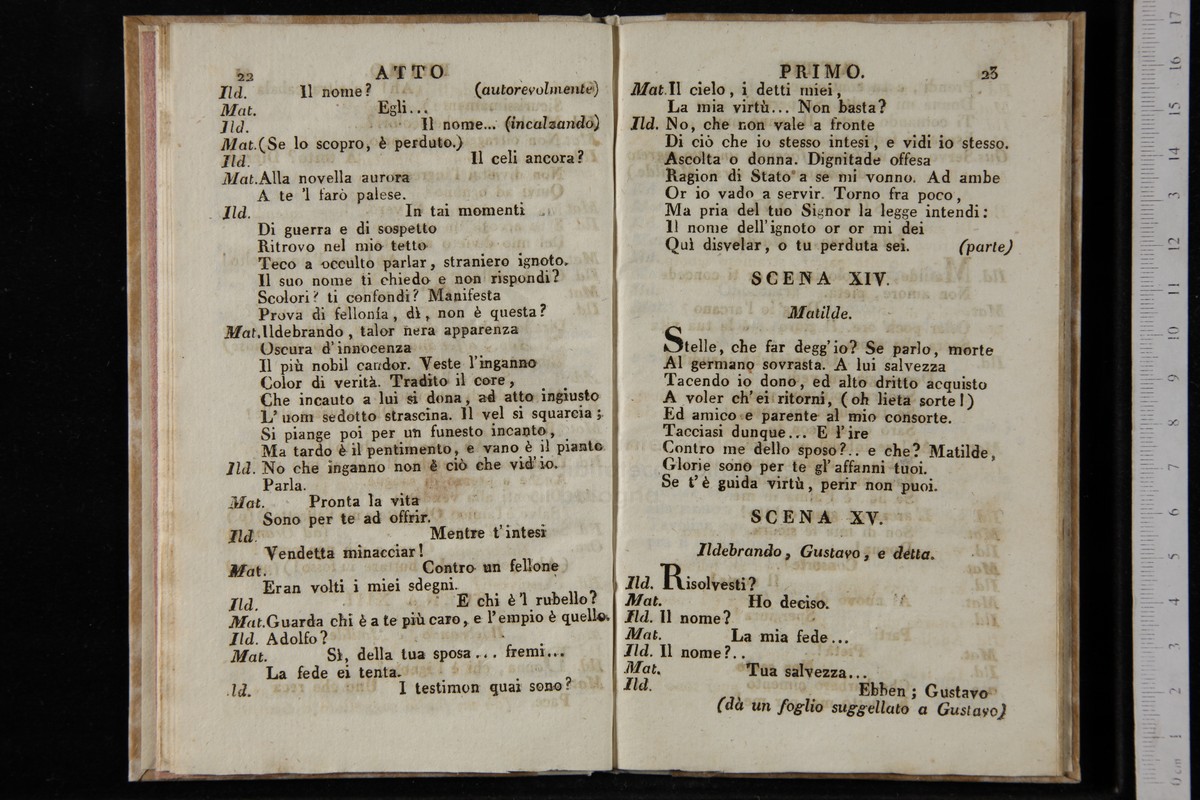 22 ATTO
Ild. Il nome? (autorevolmente)
Mat. Egli...
Ild. Il nome... (incalzando)
Mat.(Se lo scopro, è perduto.)
Ild. Il celi ancora?
Mat.Alla novella aurora
A te 'l farò palese.
Ild. In tai momenti
Di guerra e di sospetto
Ritrovo nel mio tetto
Teco a occulto parlar, straniero ignoto.
Il suo nome ti chiedo e non rispondi?
Scolori? ti confondi? Manifesta
Prova di fellonia, dì, non è questa?
Mat.Ildebrando, talor nera apparenza
Oscura d'innocenza
Il più nobil candor. Veste l'inganno
Color di verità. Tradito il core,
Che incauto a lui si dona, ad atto ingiusto
L'uom sedotto strascina. Il vel si squarcia;
Si piange poi per un funesto incanto,
Ma tardo è il pentimento, e vano è il pianto
Ild. No che inganno non è ciò che vid'io.
Parla.
Mat. Pronta la vita
Sono per te ad offrir.
Ild. Mentre t'intesi
Vendetta minacciar!
Mat. Contro un fellone
Eran volti i miei sdegni.
Ild. E chi è'l rubello?
Mat.Guarda chi è a te più caro, e l'empio è quello.
Ild. Adolfo?
Mat. Sì, della tua sposa... fremi...
La fede ei tenta.
ld. I testimon quai sono?
PRIMO. 23
Mat.Il cielo, i detti miei,
La mia virtù... Non basta?
Ild. No, che non vale a fronte
Di ciò che io stesso intesi, e vidi io stesso.
Ascolta o donna. Dignitade offesa
Ragion di Stato a se mi vonno. Ad ambe
Or io vado a servir. Torno fra poco,
Ma pria del tuo Signor la legge intendi:
Il nome dell'ignoto or or mi dei
Quì disvelar, o tu perduta sei. (parte)
SCENA XIV.
Matilde.
Stelle, che far degg'io? Se parlo, morte
Al germano sovrasta. A lui salvezza
Tacendo io dono, ed alto dritto acquisto
A voler ch'ei ritorni, (oh lieta sorte!)
Ed amico e parente al mio consorte.
Tacciasi dunque... E l'ire
Contro me dello sposo?.. e che? Matilde,
Glorie sono per te gl'affanni tuoi.
Se t'è guida virtù, perir non puoi.
SCENA XV.
Ildebrando, Gustavo, e detta.
Ild. Risolvesti?
Mat. Ho deciso.
Ild. Il nome?
Mat. La mia fede...
Ild. Il nome?..
Mat. Tua salvezza...
Ild. Ebben; Gustavo
(dà un foglio suggellato a Gustavo)
0 cm 1 2 3 4 5 6 7 8 9 10 11 12 13 14 15 16 17